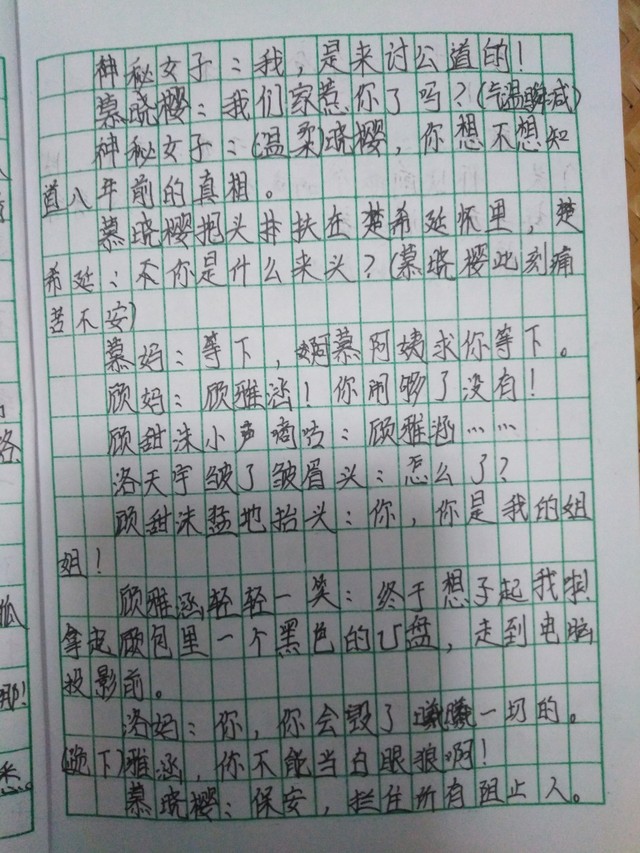 神秘女子：我，是来讨公道的！
慕晓樱：我们家惹你了吗？(气温瞬减)
神秘女子：(温柔)晓樱，你想不想知
道八年前的真相。
慕晓樱把头扶在楚希延怀里，楚
希延：不你是什么来头？(慕晓樱此刻痛
苦不安)
慕妈：等下，慕阿姨求你等下。
顾妈：顾雅涵！你闹够了没有！
顾甜沫小声嘀咕：顾雅涵……
洛天宇皱了皱眉头：怎么了？
顾甜沫猛地抬头：你，你是我的姐
姐！
顾雅涵轻轻一笑：终于想子起我啦！
拿起顾包里一个黑色的U盘，走到电脑
投影前。
洛妈：你，你会毁了曦曦一切的。
(跪下)雅涵，你不能当白眼狼啊！
慕晓樱：保安，拦住所有阻止人。